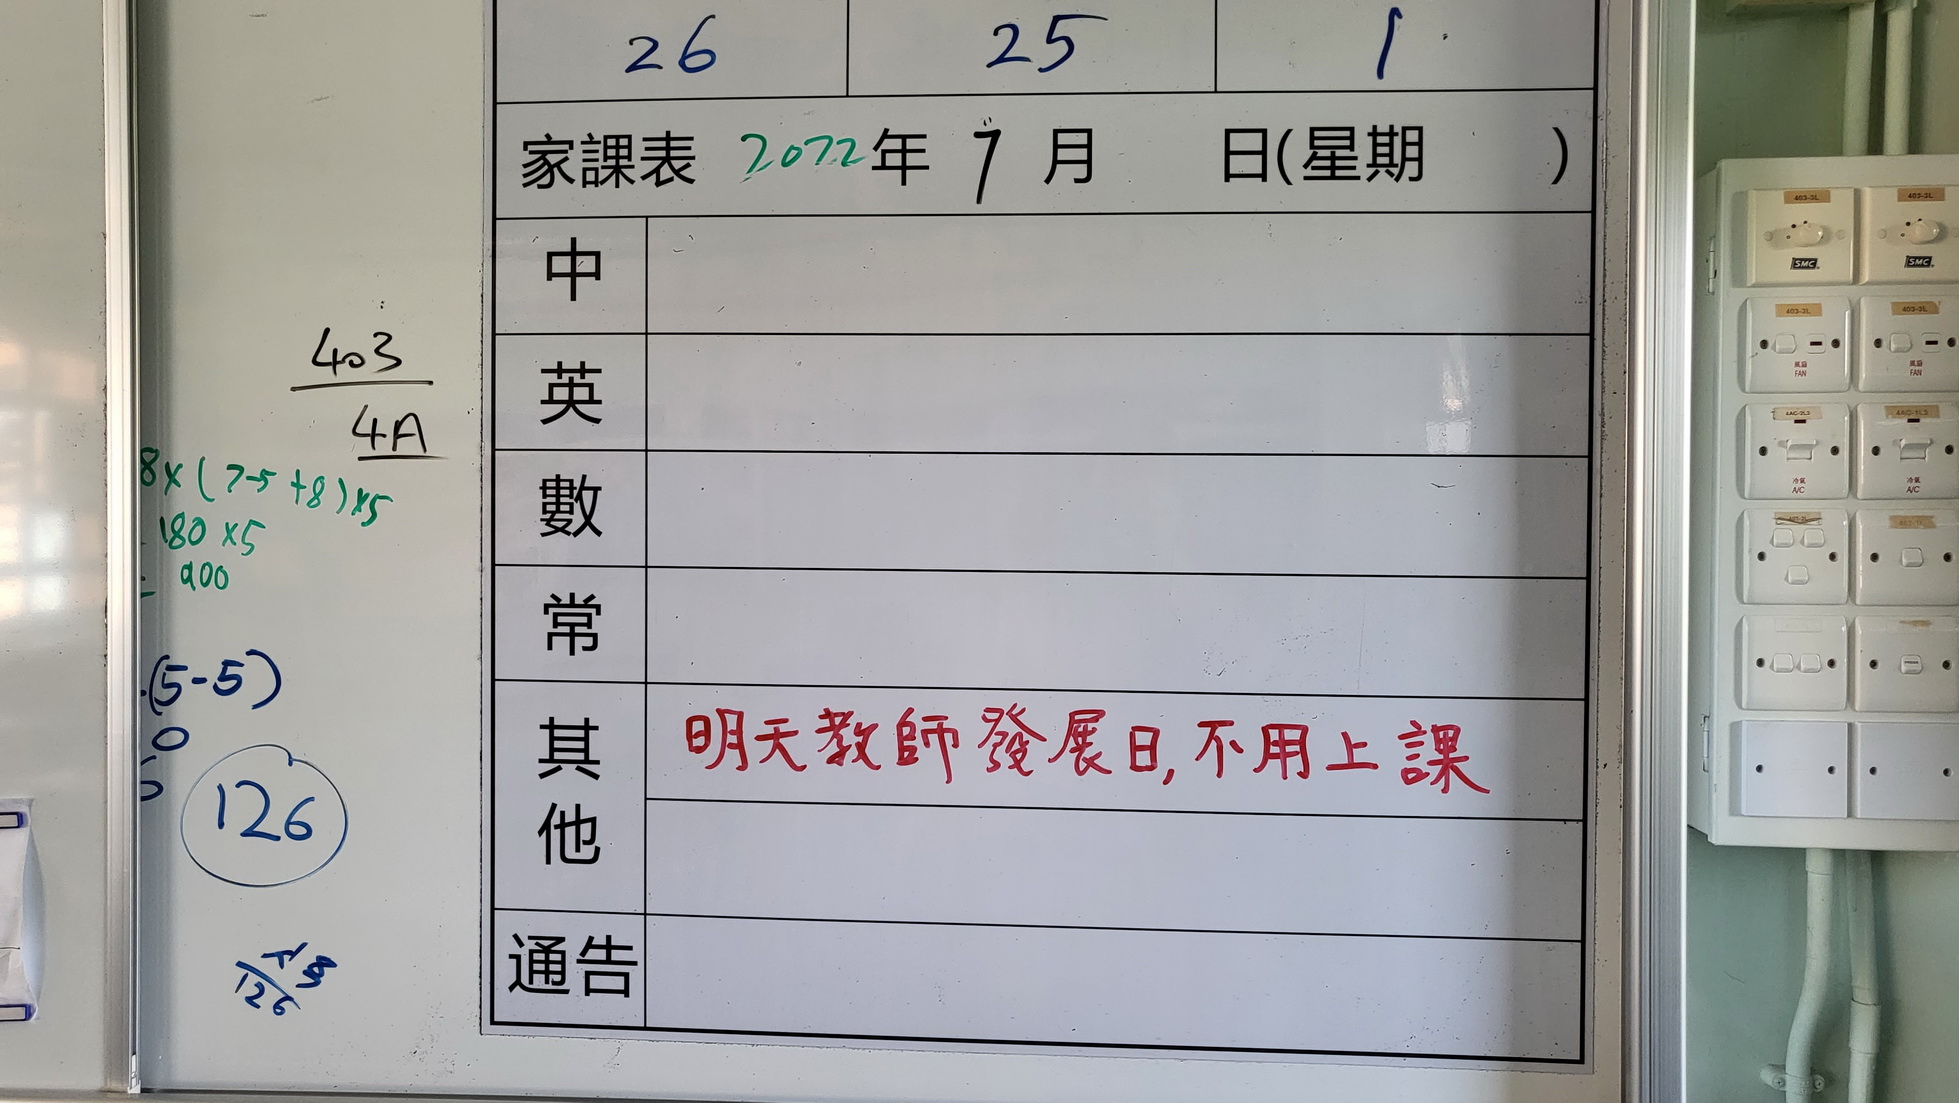 26 25 1
家課表 2022年 7月 日(星期 )
中
英
數
常
其他 明天教師發展日,不用上課
通告
403
4A
8×(7-5+8)×5
180×5
= 900
(5-5)
0
126
126
403-3L 403-3L
SMC SMC
403-3L 403-3L
風扇 FAN 風扇 FAN
冷氣 A/C 冷氣 A/C